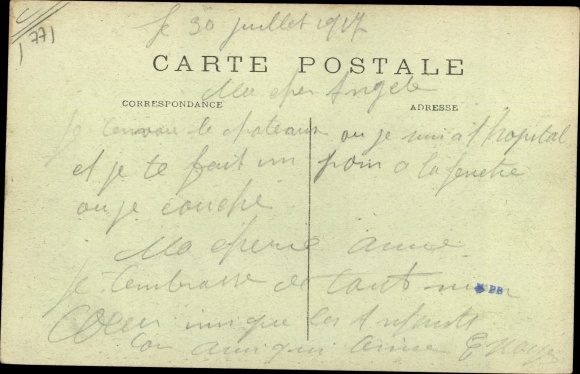 771
le 30 juillet 1917
CARTE POSTALE
Ma cher Angele
CORRESPONDANCE
ADRESSE
Je t'envoie le chateaux ou je suis a l'hopital
et je te fait un poin a la fenetre
ou je couche
Ma cherie amie
Je t'embrasse de tout mon
Coeur inique les Anfants
ton ami qui t'aime